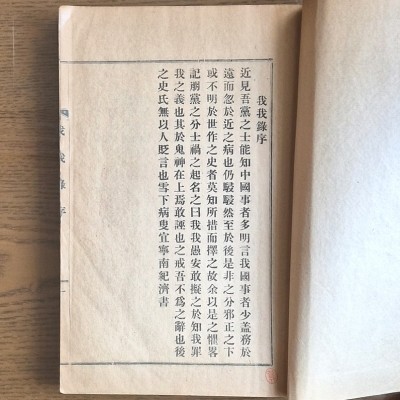 我我錄序
近見吾黨之士能知中國事者多明言我國事者少盖務於
遠而忽於近之病也仍駸駸然至於後是非之分邪正之下
或不明於世作之史者莫知所措而擇之故余以是之懼畧
記朋黨之分士禍之起名之曰我我愚安敢擬之於知我罪
我之義也其於鬼神在上焉敢誣也之戒吾不為之辭也後
之史氏無以人貶言也雪下病叟宜寧南紀濟書
我我錄序
一